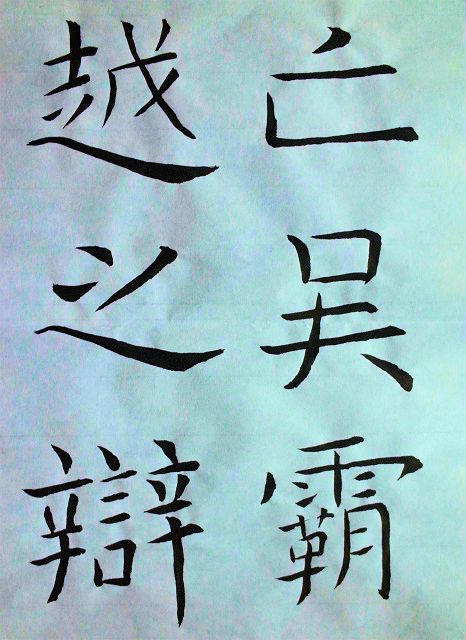 亡吳霸
越之辯